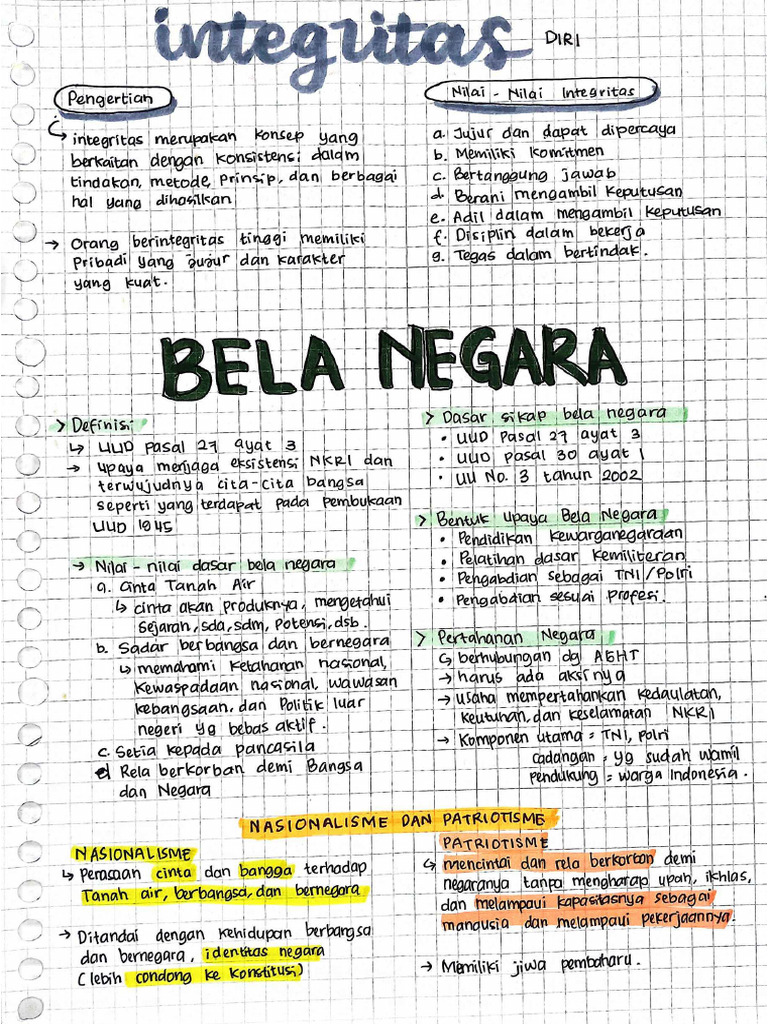 integritas DIRI
Pengertian
↳ integritas merupakan konsep yang
berkaitan dengan konsistensi dalam
tindakan, metode, prinsip, dan berbagai
hal yang dihasilkan
→ Orang berintegritas tinggi memiliki
Pribadi yang jujur dan karakter
yang kuat.
Nilai - Nilai Integritas
a. Jujur dan dapat dipercaya
b. Memiliki komitmen
c. Bertanggung jawab
d. Berani mengambil keputusan
e. Adil dalam mengambil keputusan
f. Disiplin dalam bekerja
g. Tegas dalam bertindak.
BELA NEGARA
> Definisi
↳ UUD pasal 27 ayat 3
→ upaya menjaga eksistensi NKRI dan
terwujudnya cita-cita bangsa
seperti yang terdapat pada pembukaan
UUD 1945
→ Nilai - nilai dasar bela negara
a. Cinta Tanah Air
↳ cinta akan produknya, mengetahui
sejarah, sda, sdm, potensi, dsb.
b. Sadar berbangsa dan bernegara
↳ memahami ketahanan nasional,
kewaspadaan nasional, wawasan
kebangsaan, dan Politik luar
negeri yg bebas aktif.
c. Setia kepada pancasila
d Rela berkorban demi Bangsa
dan Negara
> Dasar sikap bela negara
• UUD Pasal 27 ayat 3
• UUD pasal 30 ayat 1
• UU No. 3 tahun 2002
> Bentuk Upaya Bela Negara
• Pendidikan kewarganegaraan
• Pelatihan dasar kemiliteran
• Pengabdian sebagai TNI/Polri
• Pengabdian sesuai profesi.
> Pertahanan Negara
↳ berhubungan dg AGHT
→ harus ada aksinya
→ usaha mempertahankan kedaulatan,
keutuhan, dan keselamatan NKRI
→ Komponen utama = TNI, Polri
cadangan = yg sudah wamil
pendukung = warga Indonesia.
NASIONALISME DAN PATRIOTISME
NASIONALISME
↳ Perasaan cinta dan bangga terhadap
Tanah air, berbangsa, dan bernegara
→ Ditandai dengan kehidupan berbangsa
dan bernegara, identitas negara
(lebih condong ke konstitusi)
PATRIOTISME
↳ mencintai dan rela berkorban demi
negaranya tanpa mengharap upah, ikhlas,
dan melampaui kapasitasnya sebagai
manusia dan melampaui pekerjaannya.
→ Memiliki jiwa pembaharu.